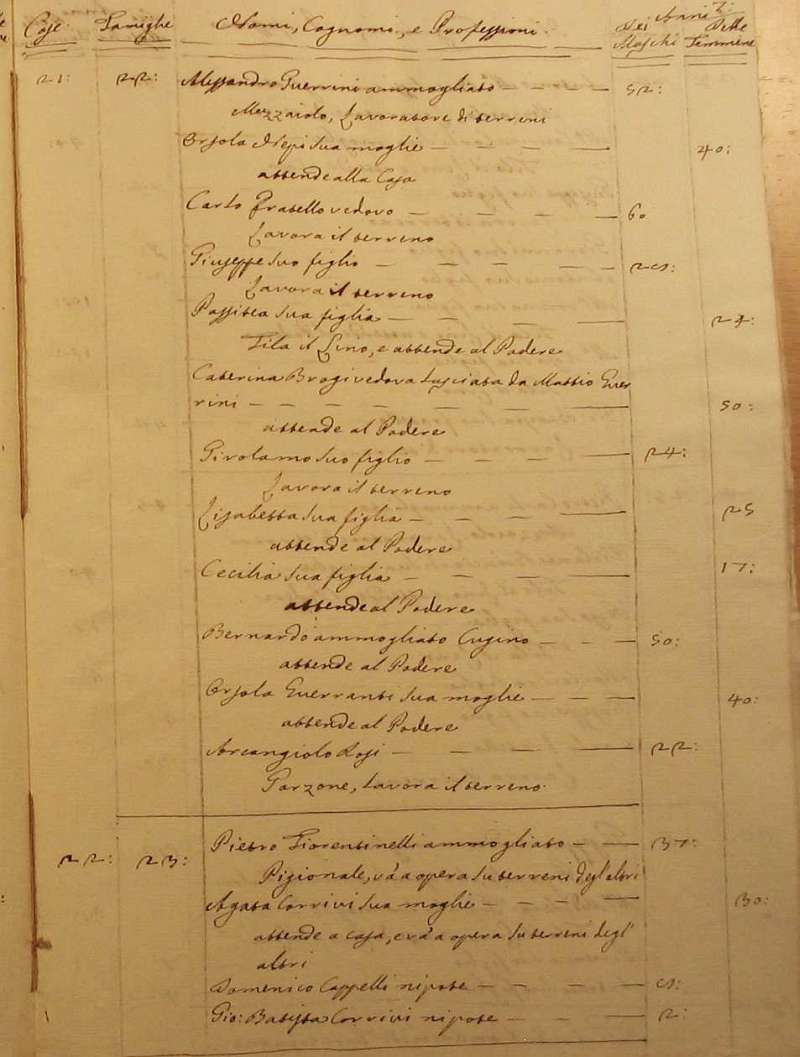 Case Famiglie Nomi, Cognomi, e Professioni Anni
Dei Maschi Delle Femmine
21: 22: Alessandro Guerrini ammogliato — — — — 52:
Mezzaiolo, Lavoratore di terreni
Orsola Nepi sua moglie — — — — 40:
attende alla Casa
Carlo Fratello vedovo — — — — 60
Lavora il terreno
Giuseppe suo figlio — — — — 29:
Lavora il terreno
Passitea sua figlia — — — — 24:
Fila il Lino, e attende al Podere
Caterina Brogi vedova lasciata da Mattio Guer
rini — — — — — — — 50:
attende al Podere
Girolamo suo figlio — — — — 24:
Lavora il terreno
Lisabetta sua figlia — — — — 25
attende al Podere
Cecilia sua figlia — — — — 17:
attende al Podere
Bernardo ammogliato Cugino — — — 50:
attende al Podere
Orsola Guerranti sua moglie — — — 40:
attende al Podere
Arcangiolo Rosi — — — — 22:
Garzone, Lavora il terreno
22: 23: Pietro Fiorentinelli ammogliato — — 37:
Pigionale, và a opera su terreni degl'altri
Agata Corrivi sua moglie — — — — 30:
attende a casa, e và a opera su terreni degl'
altri
Domenico Cappelli nipote — — — 9:
Gio: Batista Corrivi nipote — — — 2: